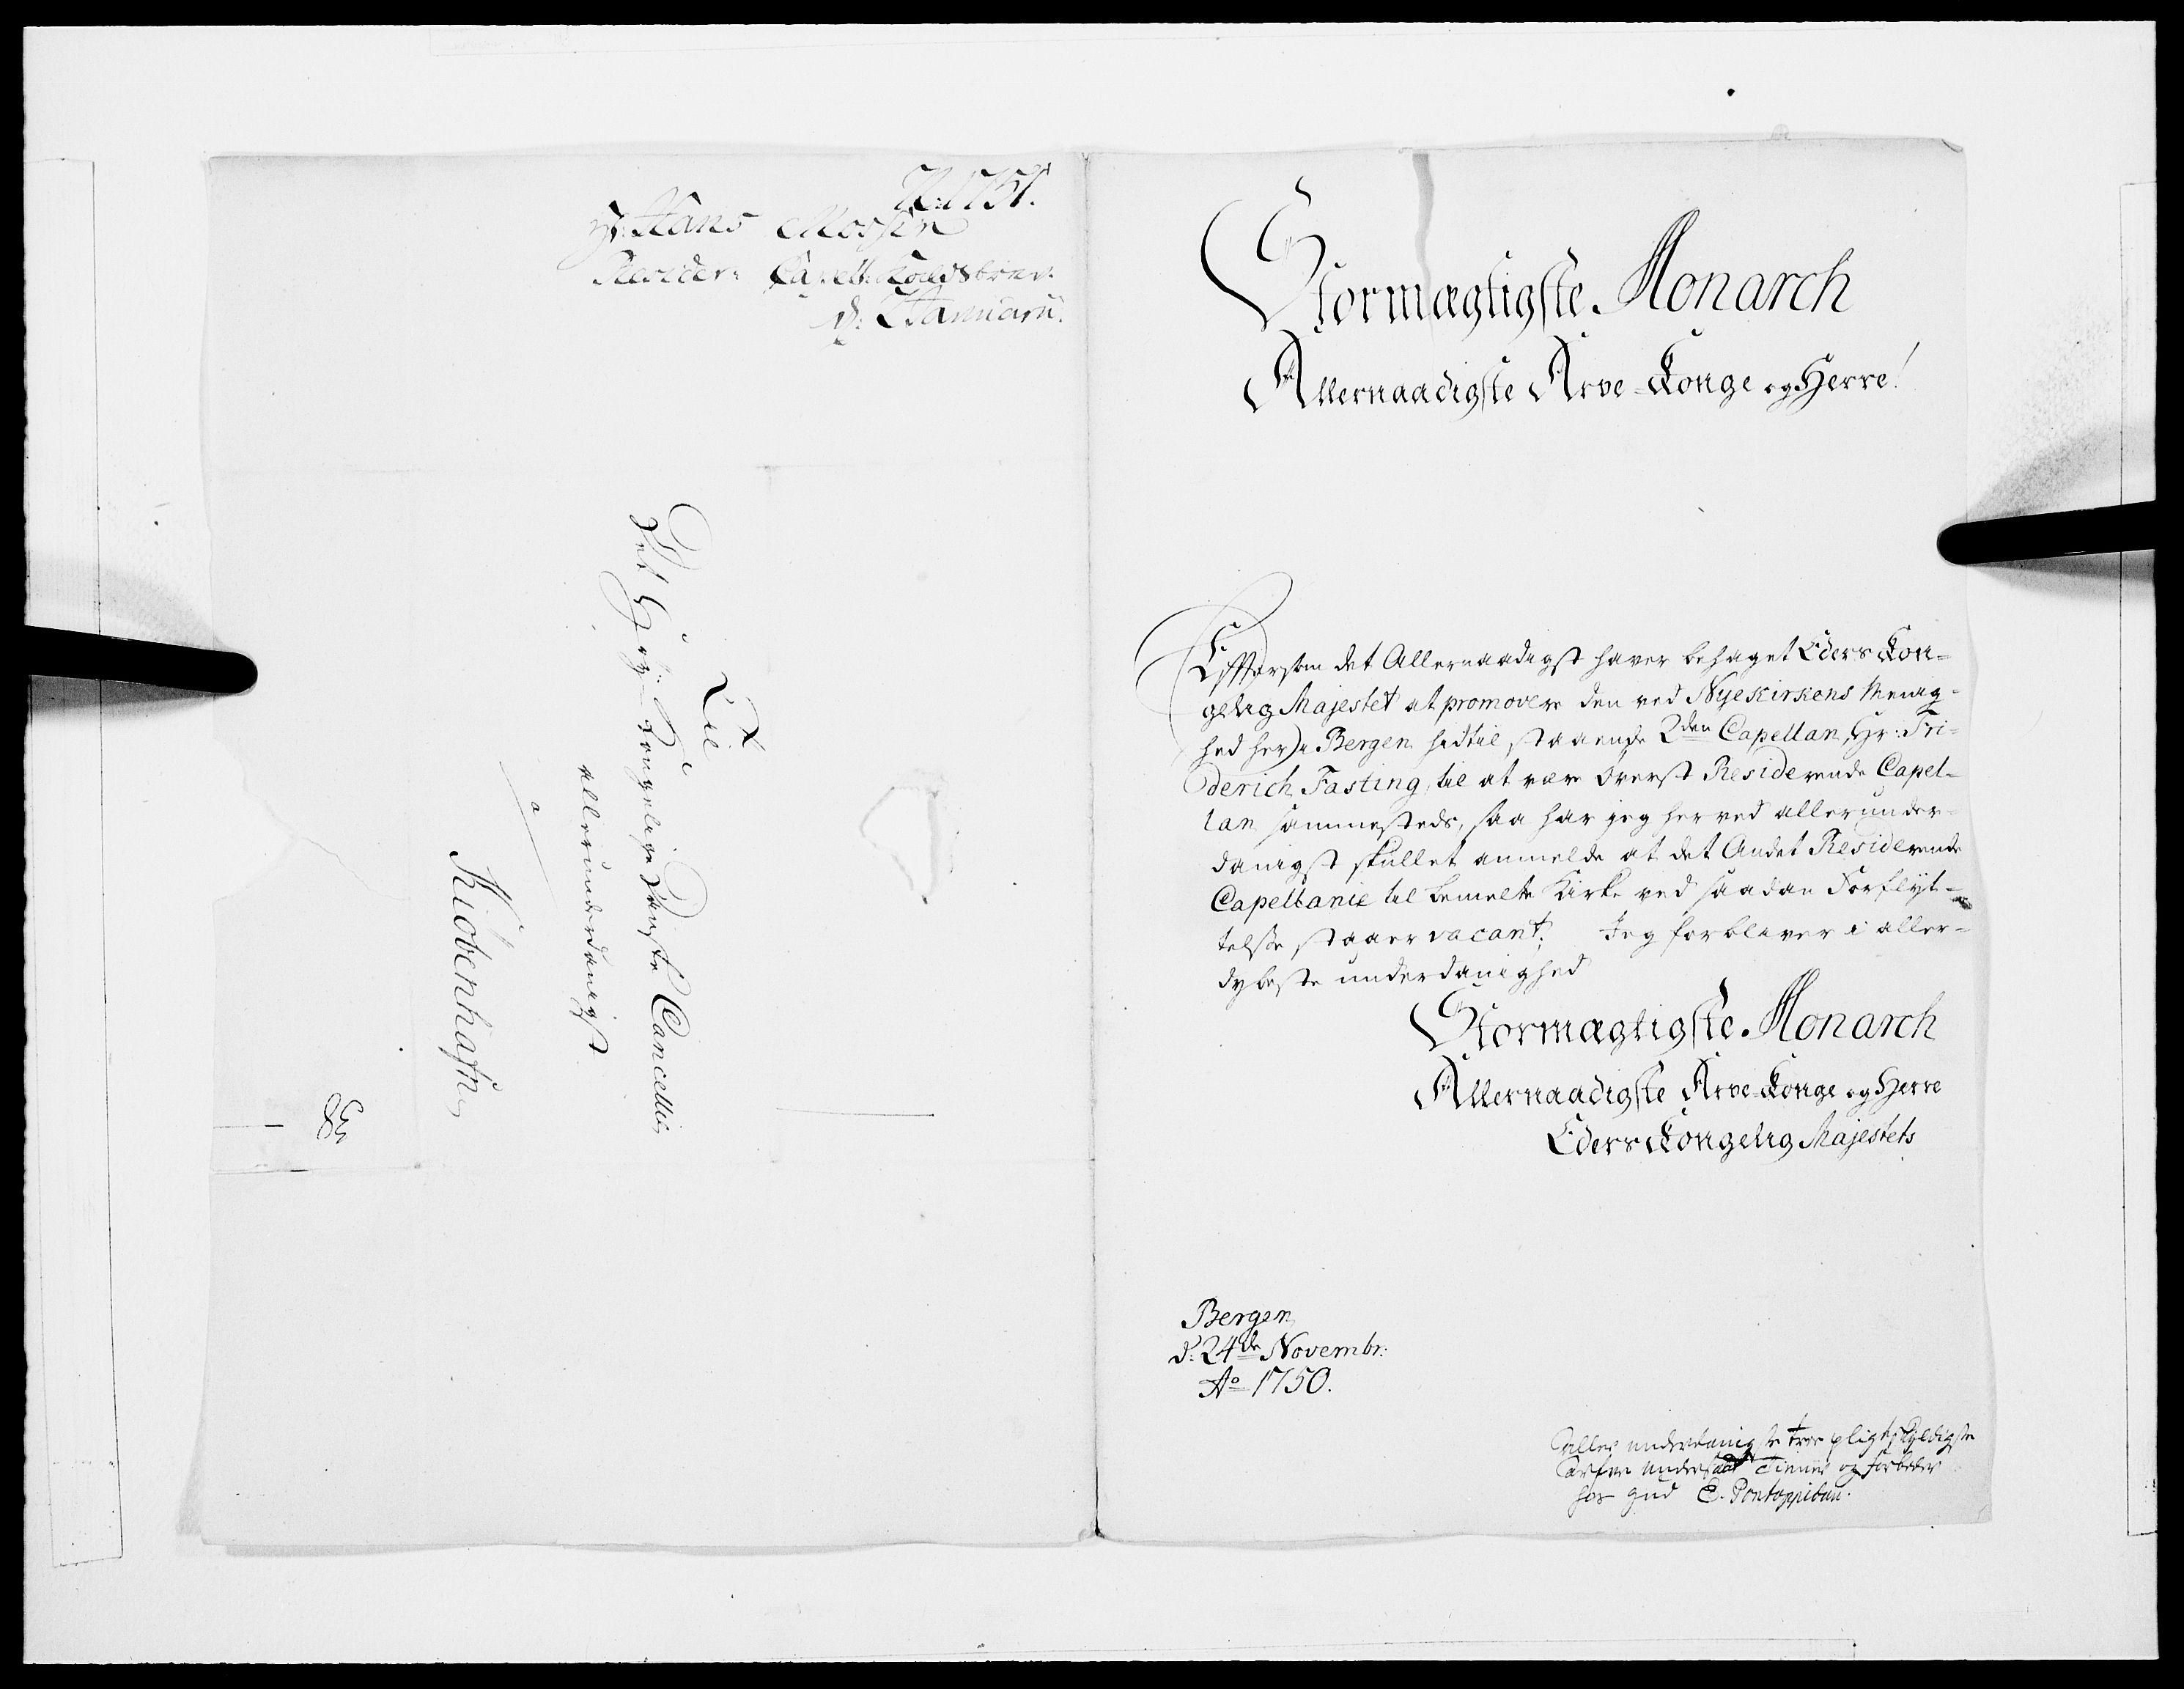 A: 1751.
Hr: Hans Mossin
Resider: Capell: Kaldsbrev.
d: Januarii.
Til
Det Höy-Kongelige Danske Cancellie
allerunderdanigst
a
Kiöbenhafn
38
Stormægtigste Monarch
Allernaadigste Arve-Konge og Herre!
Eftersom det Allernaadigst haver behaget Eders Kon-
gelig Majestet at promovere den ved Nyekirkens Menig-
hed her i Bergen hidtil staaende 2den Capellan, Hr: Fri-
derich Fasting, til at være Överst Residerende Capel-
lan sammesteds, saa har jeg herved allerunder-
danigst skullet anmelde at det Andet Residerende
Capellanie til bemelte Kirke ved saadan Forflyt-
telse staaer vacant. Jeg forbliver i aller-
dybeste underdanighed
Stormægtigste Monarch
Allernaadigste Arve-Konge og Herre
Eders Kongelig Majestets
Bergen
d: 24de Novembr:
Ao 1750.
aller underdanigste troe pligtskyldigste
Arfve undersaat Tiener og forbeder
hos Gud E. Pontoppidan.